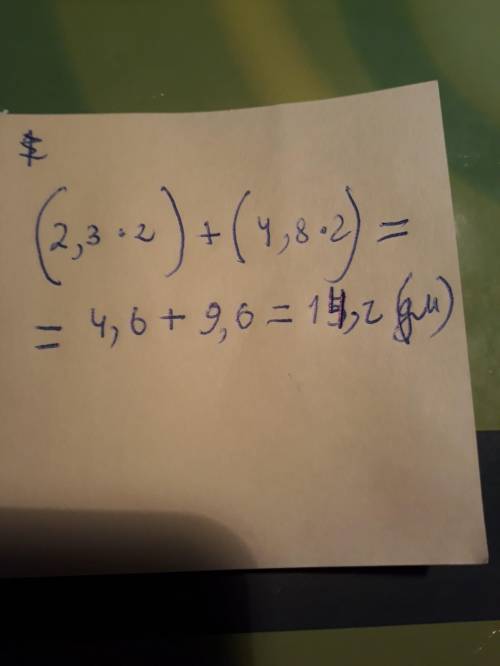 (2,3·2)+(4,8·2)=
=4,6+9,6=14,2(дм)